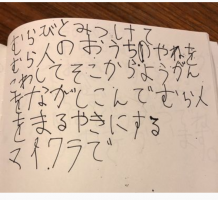 むらびとみつけて
むら人のおうちのやねを
こわしてそこからようがん
をながしこんでむら人
をまるやきにする
マイクラで